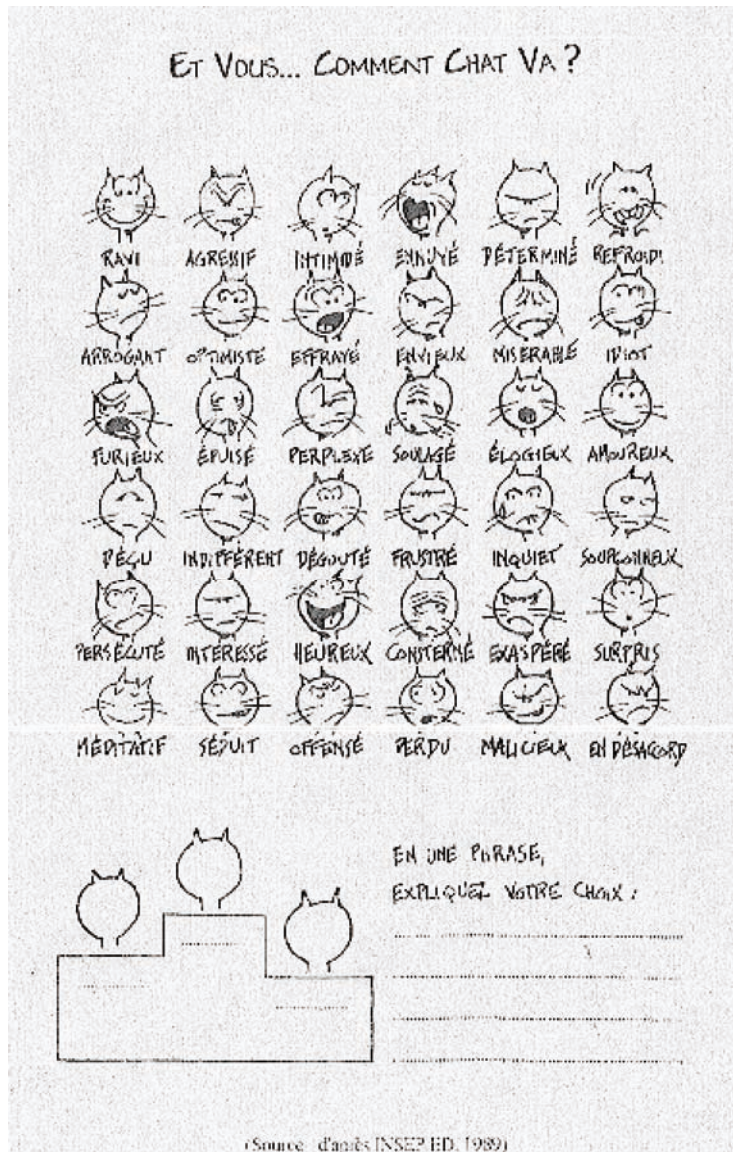 ET VOUS... COMMENT CHAT VA ?
RAVI AGRESSIF INTIMIDÉ ENNUYÉ DÉTERMINÉ REFROIDI
ARROGANT OPTIMISTE EFFRAYÉ ENVIEUX MISERABLE IDIOT
FURIEUX ÉPUISÉ PERPLEXE SOULAGÉ ÉLOGIEUX AMOUREUX
DÉÇU INDIFFÉRENT DÉGOUTÉ FRUSTRÉ INQUIET SOUPÇONNEUX
PERSÉCUTÉ INTERESSÉ HEUREUX CONSTERNÉ EXASPÉRÉ SURPRIS
MÉDITATIF SÉDUIT OFFENSÉ PERDU MALICIEUX EN DÉSACORD
EN UNE PHRASE,
EXPLIQUEZ VOTRE CHOIX :
(Source d'après INSEP ED. 1989)